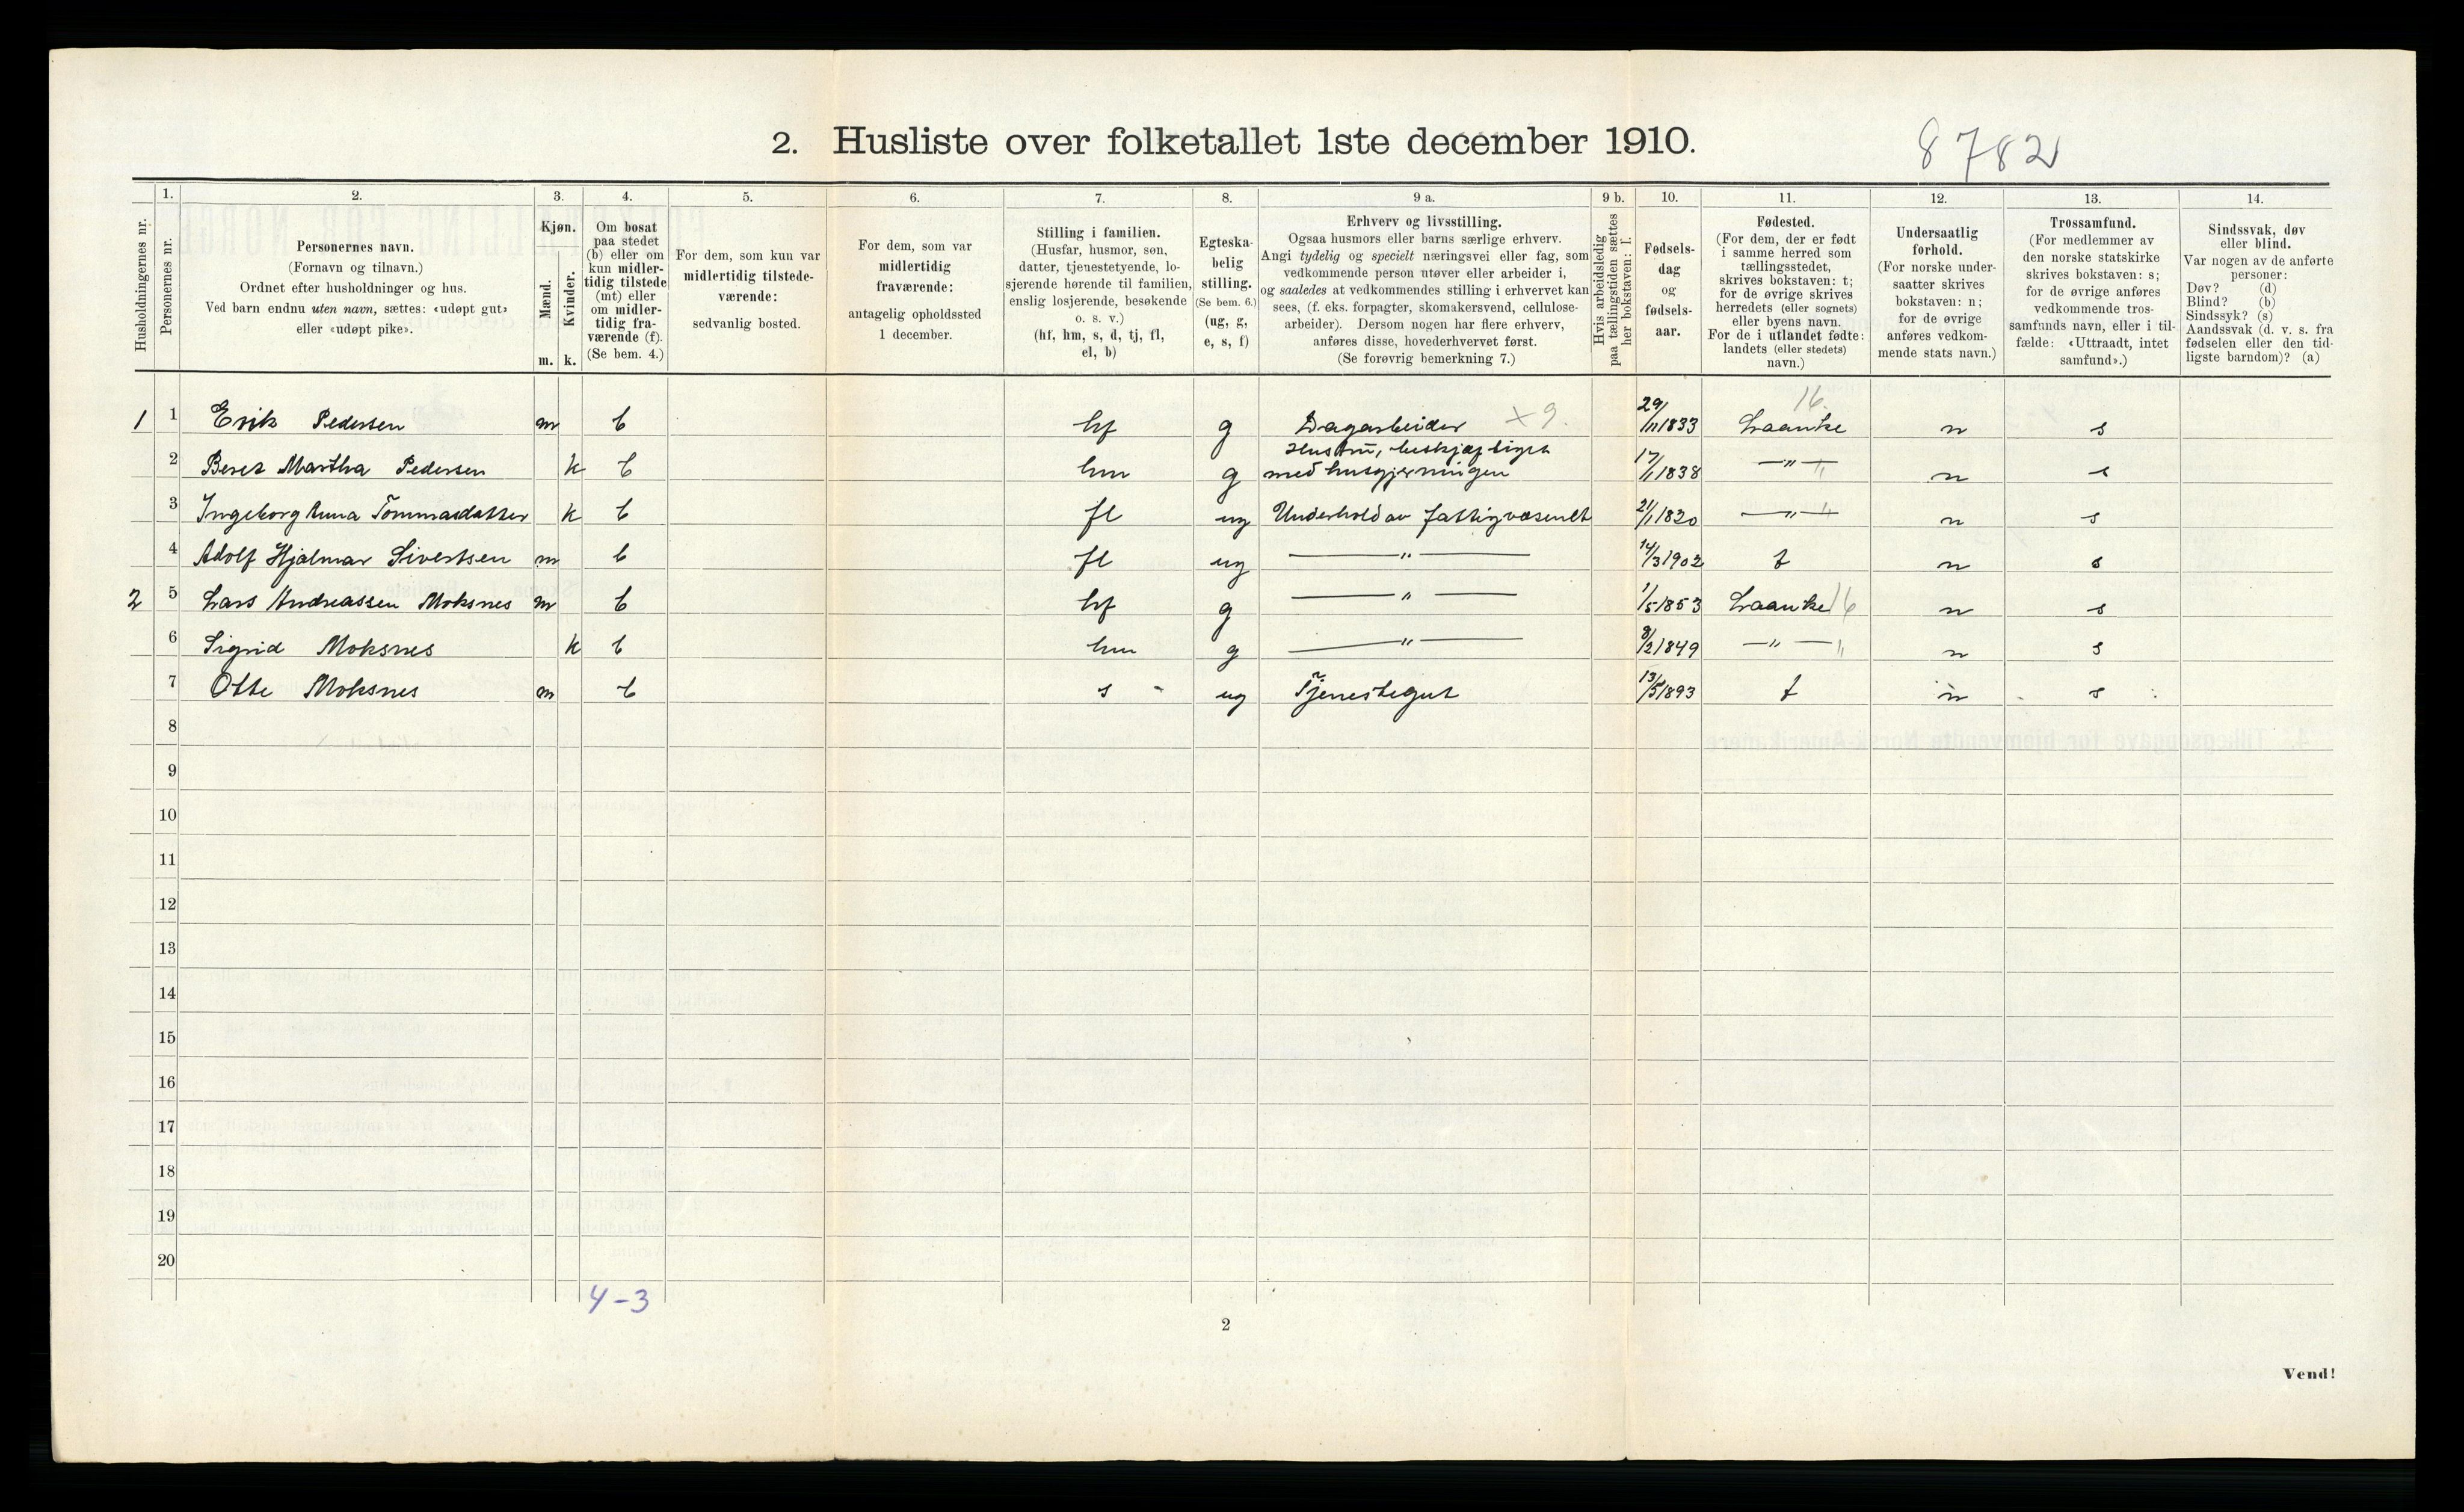 2. Husliste over folketallet 1ste december 1910.
8782
Husholdningernes nr.
1.
Personernes nr.
2.
Personernes navn.
(Fornavn og tilnavn.)
Ordnet efter husholdninger og hus.
Ved barn endnu uten navn, sættes: «udøpt gut»
eller «udøpt pike».
3.
Kjøn.
Mænd.
Kvinder.
m. k.
4.
Om bosat
paa stedet
(b) eller om
kun midler-
tidig tilstede
(mt) eller
om midler-
tidig fra-
værende (f).
(Se bem. 4.)
5.
For dem, som kun var
midlertidig tilstede-
værende:
sedvanlig bosted.
6.
For dem, som var
midlertidig
fraværende:
antagelig opholdssted
1 december.
7.
Stilling i familien.
(Husfar, husmor, søn,
datter, tjenestetyende, lo-
sjerende hørende til familien,
enslig losjerende, besøkende
o. s. v.)
(hf, hm, s, d, tj, fl,
el, b)
8.
Egteska-
belig
stilling.
(Se bem. 6.)
(ug, g,
e, s, f)
9 a.
Erhverv og livsstilling.
Ogsaa husmors eller barns særlige erhverv.
Angi tydelig og specielt næringsvei eller fag, som
vedkommende person utøver eller arbeider i,
og saaledes at vedkommendes stilling i erhvervet kan
sees, (f. eks. forpagter, skomakersvend, cellulose-
arbeider). Dersom nogen har flere erhverv,
anføres disse, hovederhvervet først.
(Se forøvrig bemerkning 7.)
9 b.
Hvis arbeidsledig
paa tællingstiden sættes
her bokstaven: l.
10.
Fødsels-
dag
og
fødsels-
aar.
11.
Fødested.
(For dem, der er født
i samme herred som
tællingsstedet,
skrives bokstaven: t;
for de øvrige skrives
herredets (eller sognets)
eller byens navn.
For de i utlandet fødte:
landets (eller stedets)
navn.)
12.
Undersaatlig
forhold.
(For norske under-
saatter skrives
bokstaven: n;
for de øvrige
anføres vedkom-
mende stats navn.)
13.
Trossamfund.
(For medlemmer av
den norske statskirke
skrives bokstaven: s;
for de øvrige anføres
vedkommende tros-
samfunds navn, eller i til-
fælde: «Uttraadt, intet
samfund».)
14.
Sindssvak, døv
eller blind.
Var nogen av de anførte
personer:
Døv? (d)
Blind? (b)
Sindssyk? (s)
Aandssvak (d. v. s. fra
fødselen eller den tid-
ligste barndom)? (a)
16.
1 1 Erik Pedersen m b hf g Dagarbeider x 9. 29/11 1833 Laanke n s
2 Beret Martha Pedersen k b hm g Hustru, beskjæftiget
med husgjerningen 17/1 1838 —"— " n s
3 Ingeborg Anna Tommasdatter k b fl ug Underhold av fattigvæsenet 21/1 1820 —"— " n s
4 Adolf Hjalmar Sivertsen m b fl ug —"— 14/3 1902 t n s
2 5 Lars Andreassen Moksnes m b hf g —"— 1/5 1853 Laanke 16 n s
6 Sigrid Moksnes k b hm g —"— 8/2 1849 —"— " n s
7 Otte Moksnes m b s - ug Tjenestegut 13/5 1893 t n s
8
9
10
11
12
13
14
15
16
17
18
19
20
4-3
2
Vend!